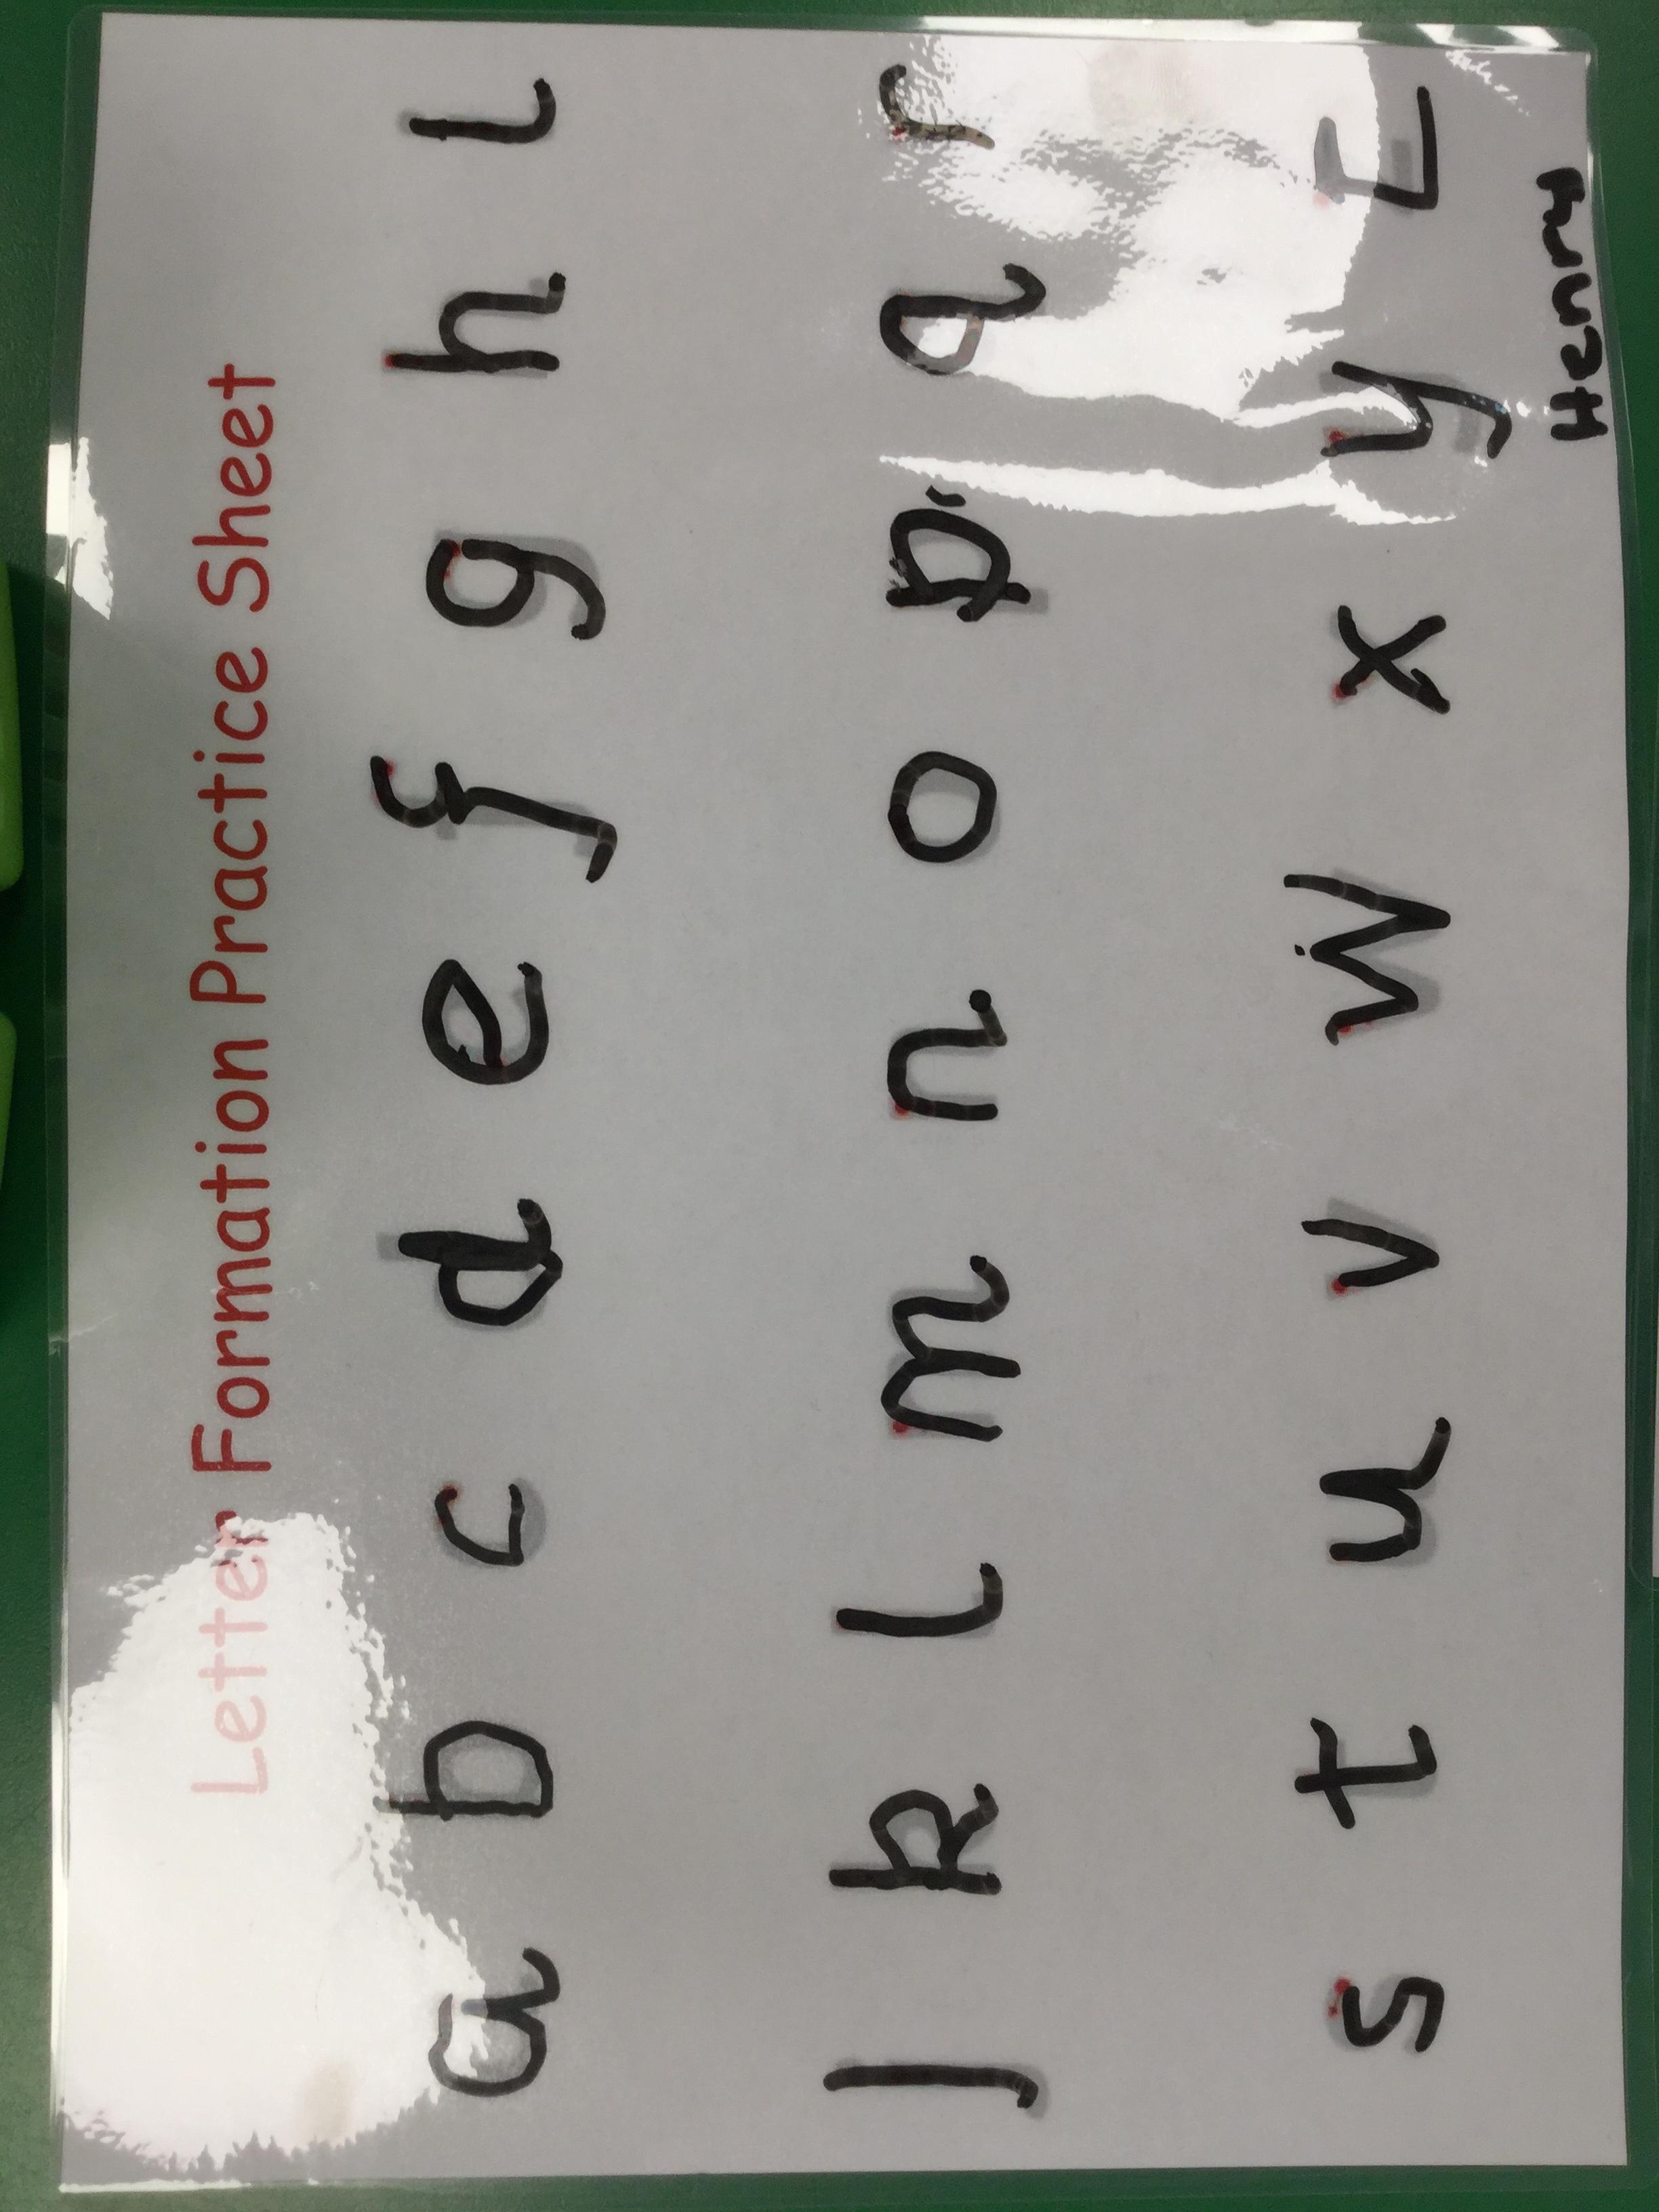 Letter Formation Practice Sheet
a b c d e f g h i
j k l m n o p q r
s t u v w x y z